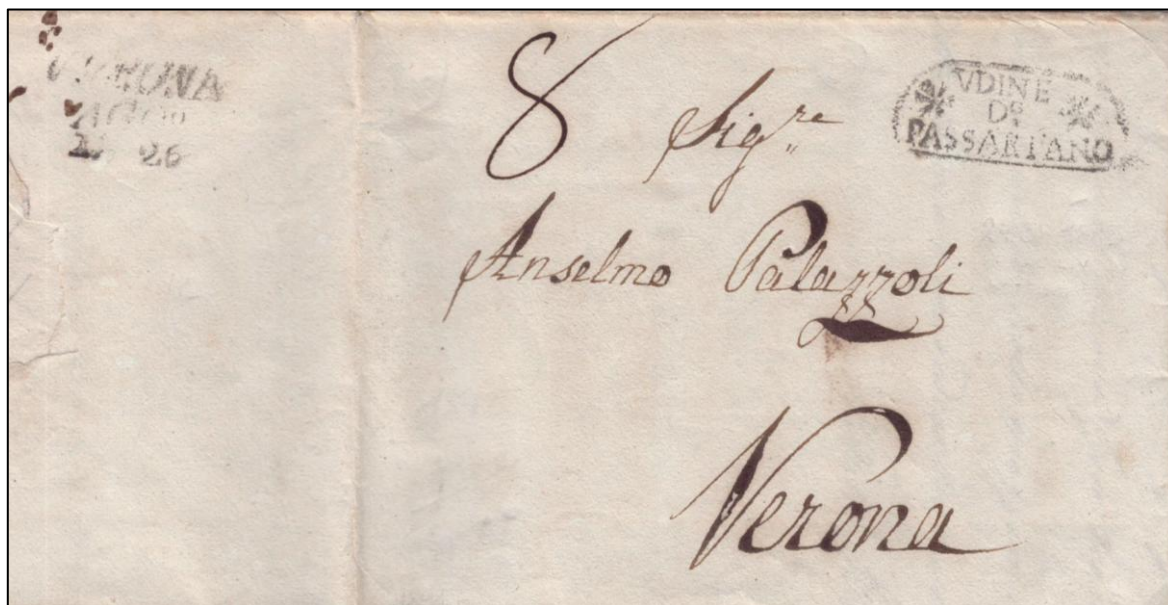 VERONA
26
8
Sig.re
VDINE
D.o
PASSARIANO
Anselmo Palazzoli
Verona